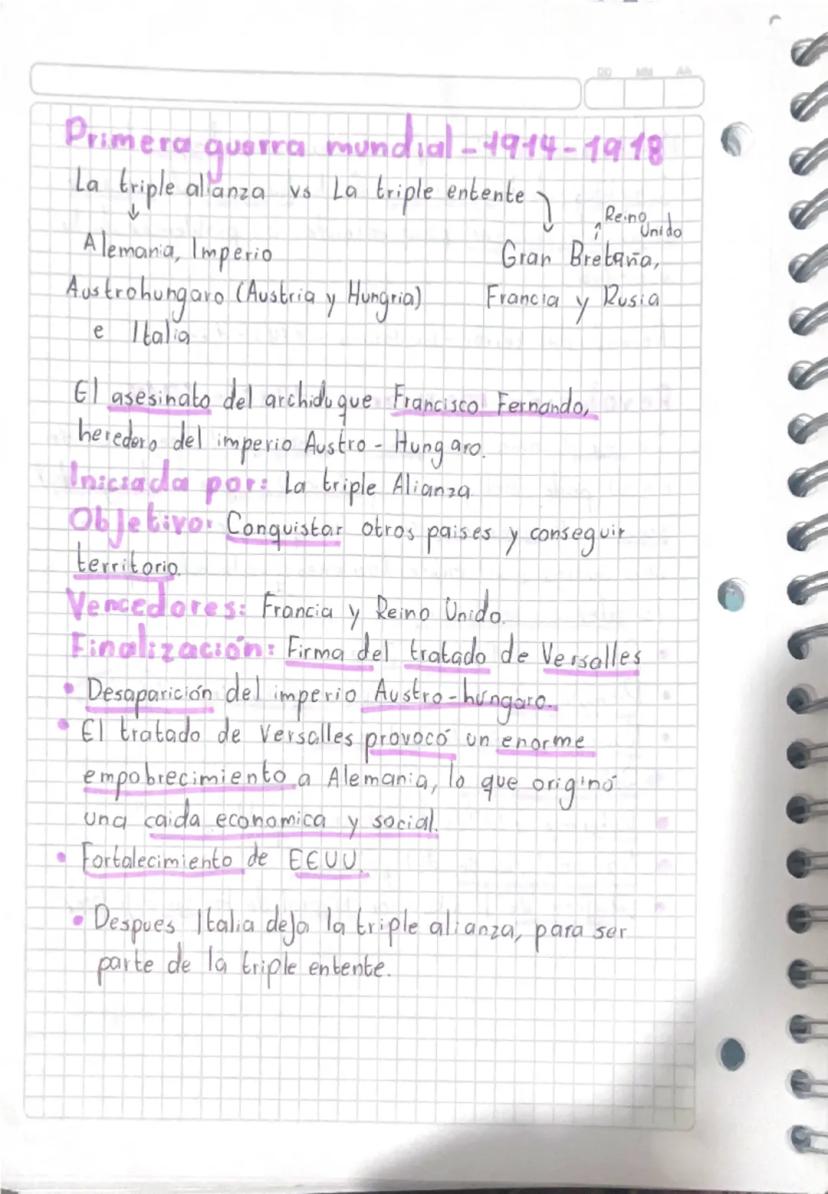 DD MM AA
Primera guerra mundial - 1914 - 1918
La triple alianza vs La triple entente
Reino Unido
Alemania, Imperio
Gran Bretaña,
Austrohungaro (Austria y Hungria)
Francia y Rusia
e Italia
El asesinato del archiduque Francisco Fernando,
heredero del imperio Austro - Hungaro.
Iniciada por: La triple Alianza
Objetivo: Conquistar otros paises y conseguir
territorio.
Vencedores: Francia y Reino Unido.
Finalización: Firma del tratado de Versalles
• Desaparición del imperio Austro-húngaro.
• El tratado de Versalles provocó un enorme
empobrecimiento a Alemania, lo que originó
una caida economica y social.
• Fortalecimiento de EEUU.
• Despues Italia deja la triple alianza, para ser
parte de la triple entente.